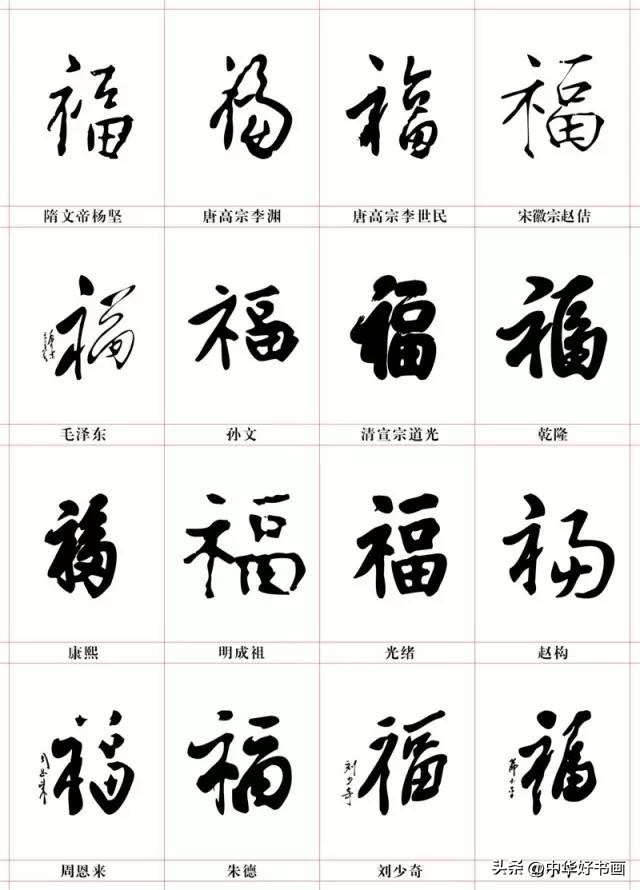 福 福 福 福
隋文帝杨坚 唐高宗李渊 唐高宗李世民 宋徽宗赵佶
福 福 福 福
毛泽东 孙文 清宣宗道光 乾隆
福 福 福 福
康熙 明成祖 光绪 赵构
福 福 福 福
周恩来
刘少奇
周恩来 朱德 刘少奇
头条 @中华好书画